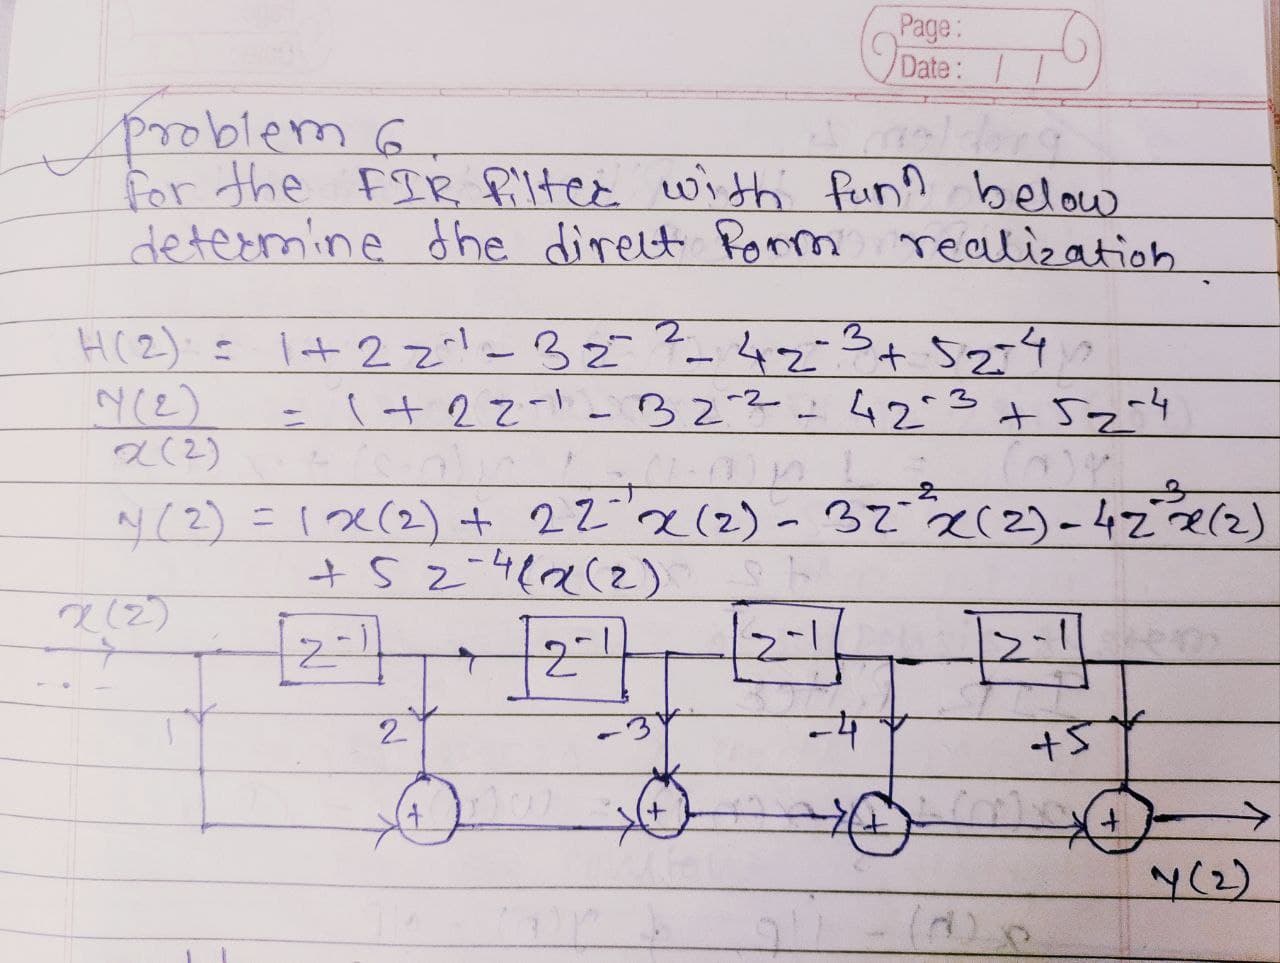 Page:
Date: / /
problem 6.
for the FIR filter with funⁿ below
determine the direct form realization.
H(z) = 1 + 2z⁻¹ - 3z⁻² - 4z⁻³ + 5z⁻⁴
Y(z)/x(z) = 1 + 2z⁻¹ - 3z⁻² - 4z⁻³ + 5z⁻⁴
Y(z) = 1x(z) + 2z⁻¹x(z) - 3z⁻²x(z) - 4z⁻³x(z)
+ 5z⁻⁴(x(z)
x(z)
z⁻¹ z⁻¹ z⁻¹ z⁻¹
1 2 -3 -4 +5
+ + + +
Y(z)